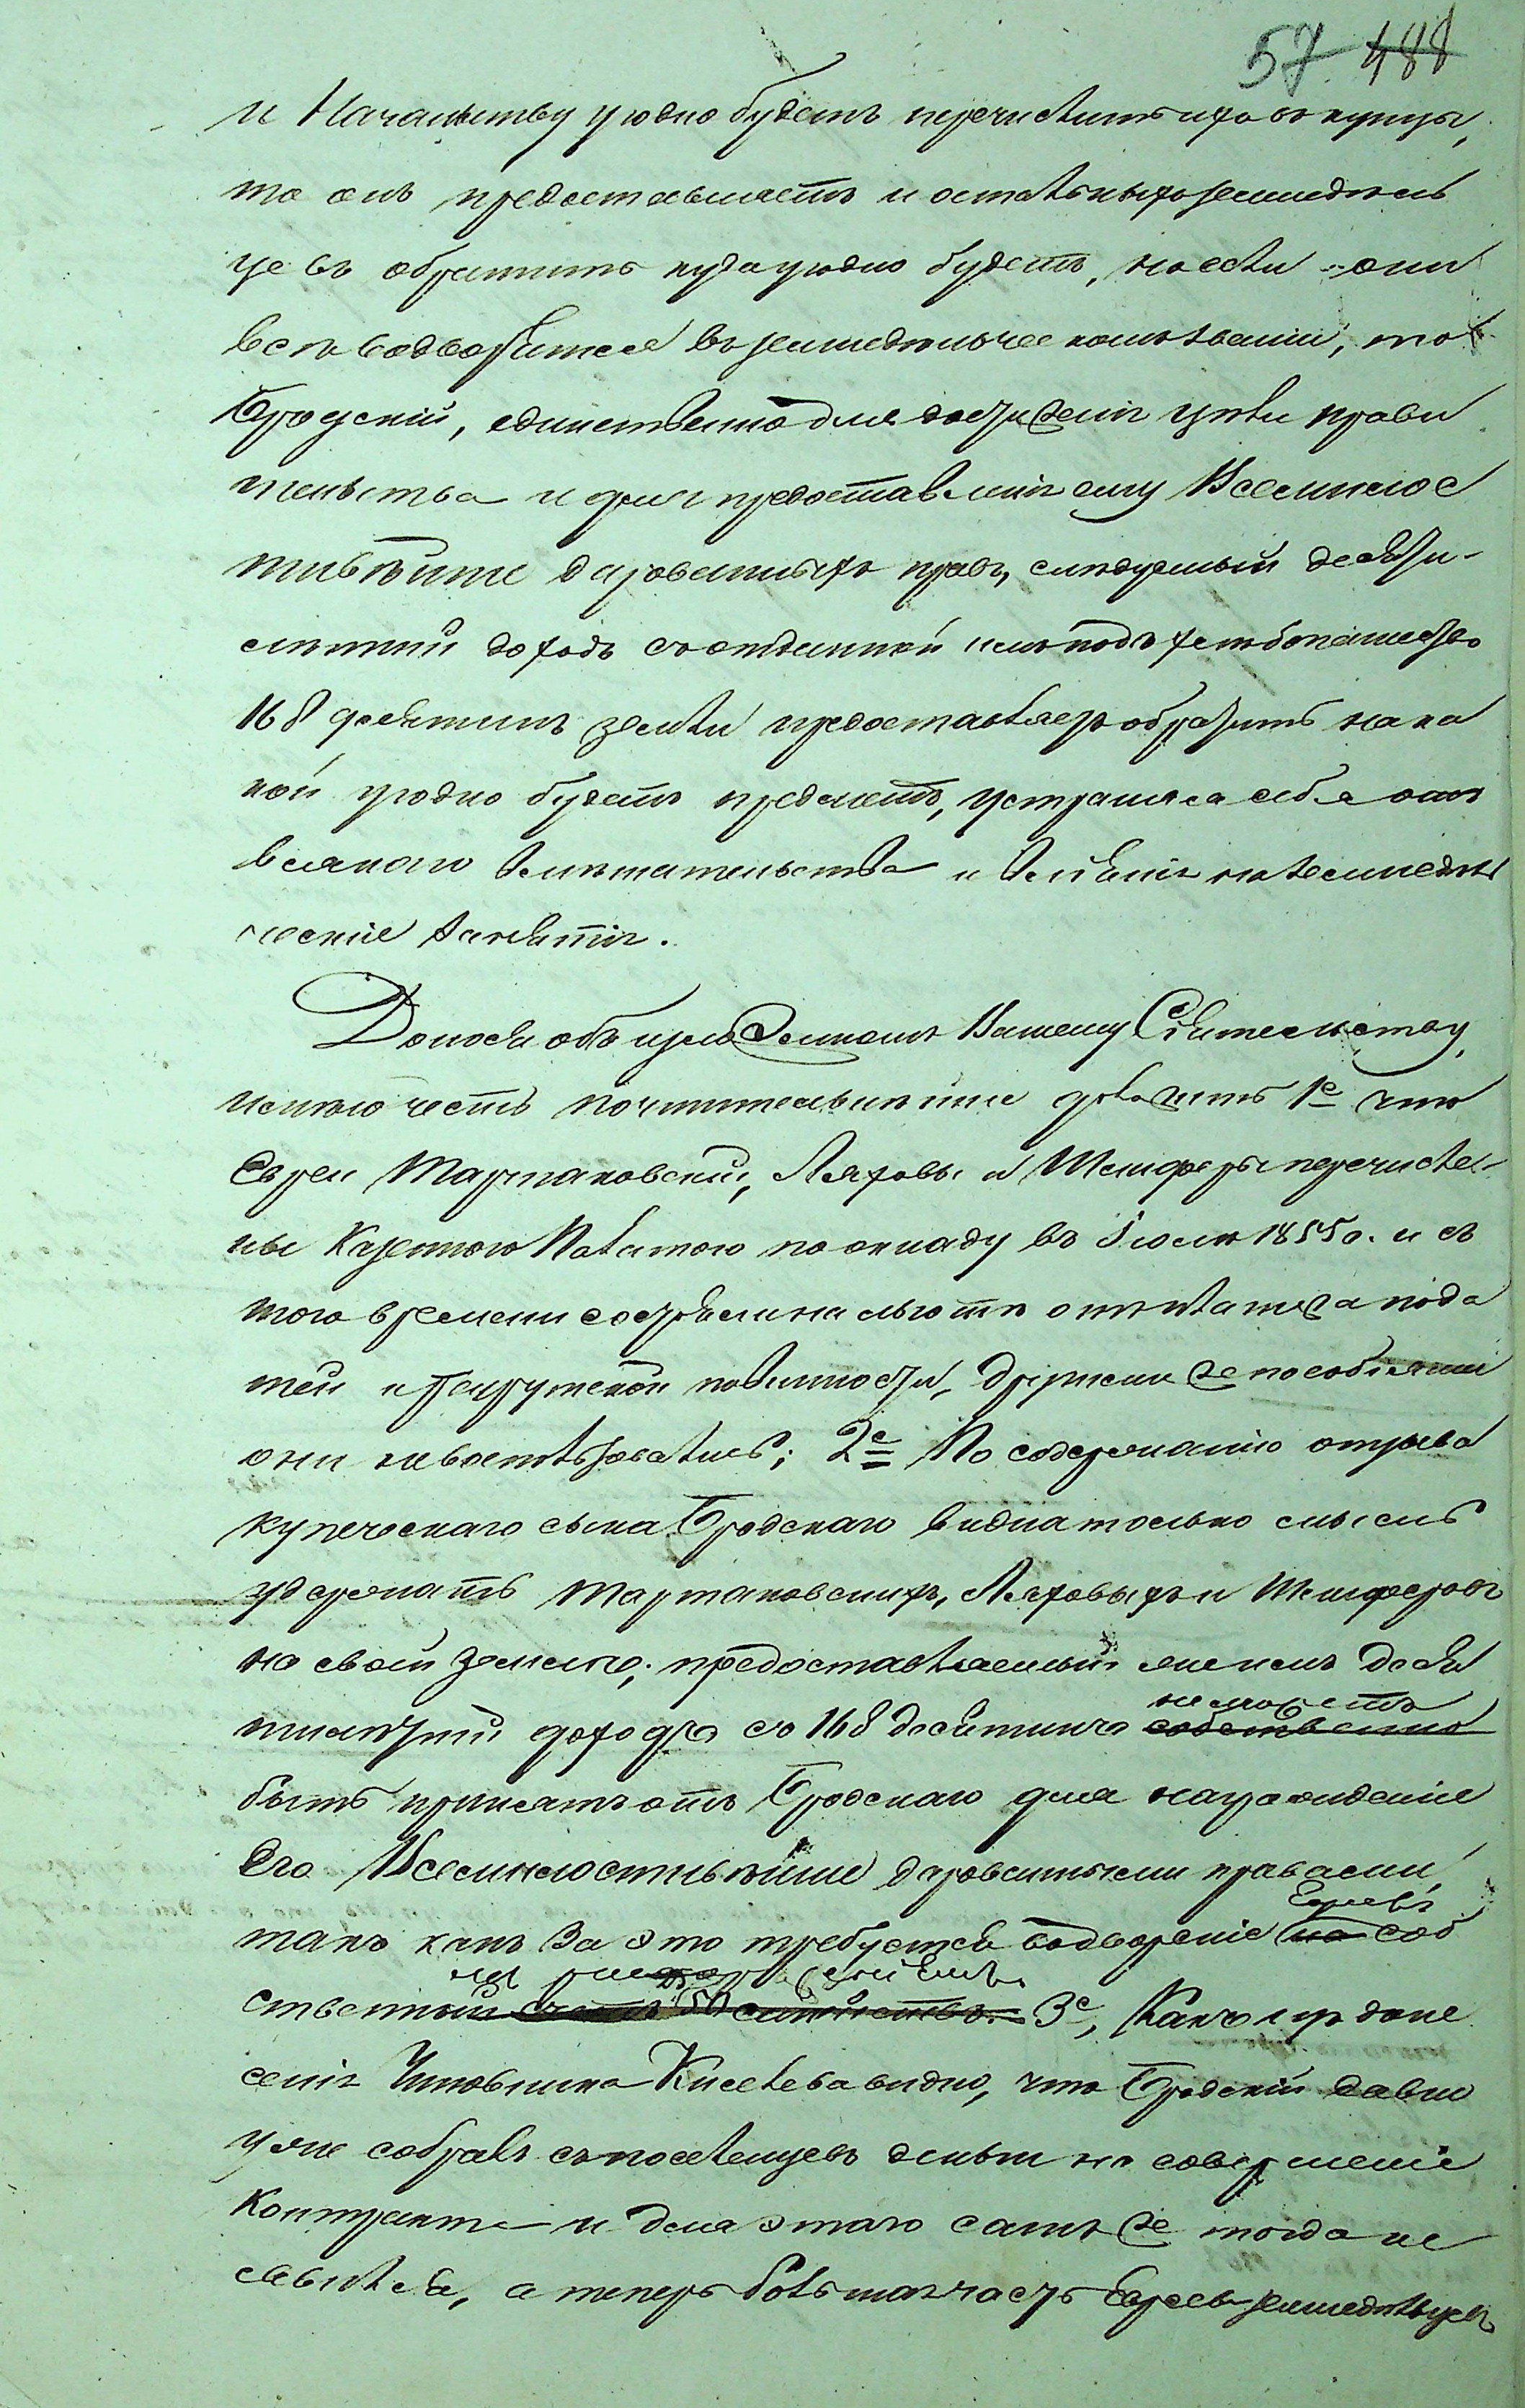 57 488
и Начальству угодно будетъ перечислить ихъ въ купцы,
то онъ предоставляетъ и остальныхъ земледѣль
цевъ обратить куда угодно будетъ, но если они
всѣ водворятся въ земледѣльческомъ званіи, то
Бродскій, единственно для достиженія цѣли прави
тельства и для предоставленія ему Всемилос
тивѣйше дарованныхъ правъ, слѣдуемый десяти-
лѣтній доходъ съ отданной имъ подъ хлѣбопашество
168 десятинъ земли предоставляетъ обратить на ка
кой угодно будетъ предметъ, устраняя себя отъ
всякаго вмѣшательства и вліянія на земледѣль
ческіе занятія.
Донося объ изложенномъ Вашему Сіятельству,
имѣю честь почтительнѣйше доложить 1е что
Евреи Тартаковскіи, Ляховы и Шмиферы перечисле-
ны Казенною Палатою по окладу въ Іюлѣ 1855 г. и съ
того времени состояли на льготѣ отъ платежа пода
тей и рекрутской повинности, другими же пособіями
они невоспользовались; 2е По содержанію отзыва
купеческаго сына Бродскаго видна только мысль
удержать Тартаковскихъ, Ляховыхъ и Шмиферовъ
на своей землѣ; предоставляемый же имъ деся
тилѣтній доходъ со 168 десятинъ собственно
неможетъ
быть принятъ отъ Бродскаго для награжденія
Его Всемилостивѣйше дарованными правами,
Евреевъ
такъ какъ за это требуется водвореніе на соб
ственный счетъ 50 семействъ. 3е, Какъ изъ доне
сенія Чиновника Киселева видно, что Бродскій давно
уже собралъ съ поселенцевъ деньги на совершеніе
контракта и для этого самъ же тогда не
явился, а теперь большая часть Евреевъ земледѣльцевъ